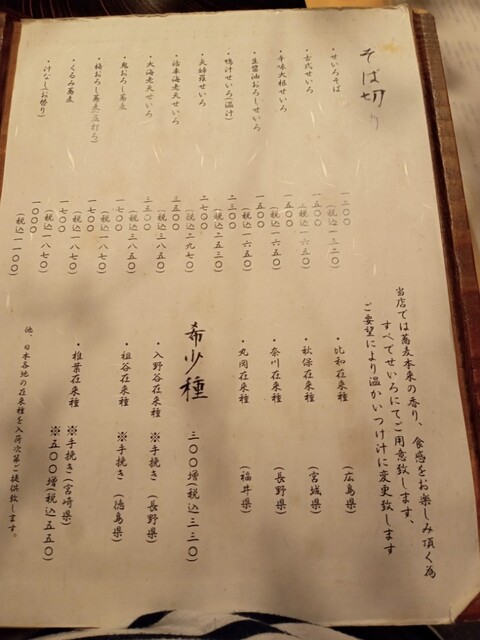 そば切り
・せいろそば
一二〇〇
(税込一三二〇)
・古式せいろ
一五〇〇
(税込一六五〇)
・辛味大根せいろ
一五〇〇
(税込一六五〇)
・生醤油おろしせいろ
一五〇〇
(税込一六五〇)
・鴨汁せいろ(温汁)
二三〇〇
(税込二五三〇)
・天婦羅せいろ
二七〇〇
(税込二九七〇)
・活車海老天せいろ
三五〇〇
(税込三八五〇)
・大海老天せいろ
三五〇〇
(税込三八五〇)
・鬼おろし蕎麦
一七〇〇
(税込一八七〇)
・梅おろし蕎麦
一七〇〇
(税込一八七〇)
・くるみ蕎麦
一七〇〇
(税込一八七〇)
・汁なし(お替り)
一〇〇〇
(税込一一〇〇)
当店では蕎麦本来の香り、食感をお楽しみ頂く為
すべてせいろにてご用意致します、
ご要望により温かいつけ汁に変更致します
・比和在来種 (広島県)
・秋保在来種 (宮城県)
・奈川在来種 (長野県)
・丸岡在来種 (福井県)
希少種 三〇〇増(税込三三〇)
・入野谷在来種 ※手挽き(長野県)
・祖谷在来種 ※手挽き(徳島県)
・椎葉在来種 ※手挽き(宮崎県)
※五〇〇増(税込五五〇)
他、日本各地の在来種を入荷次第ご提供致します。